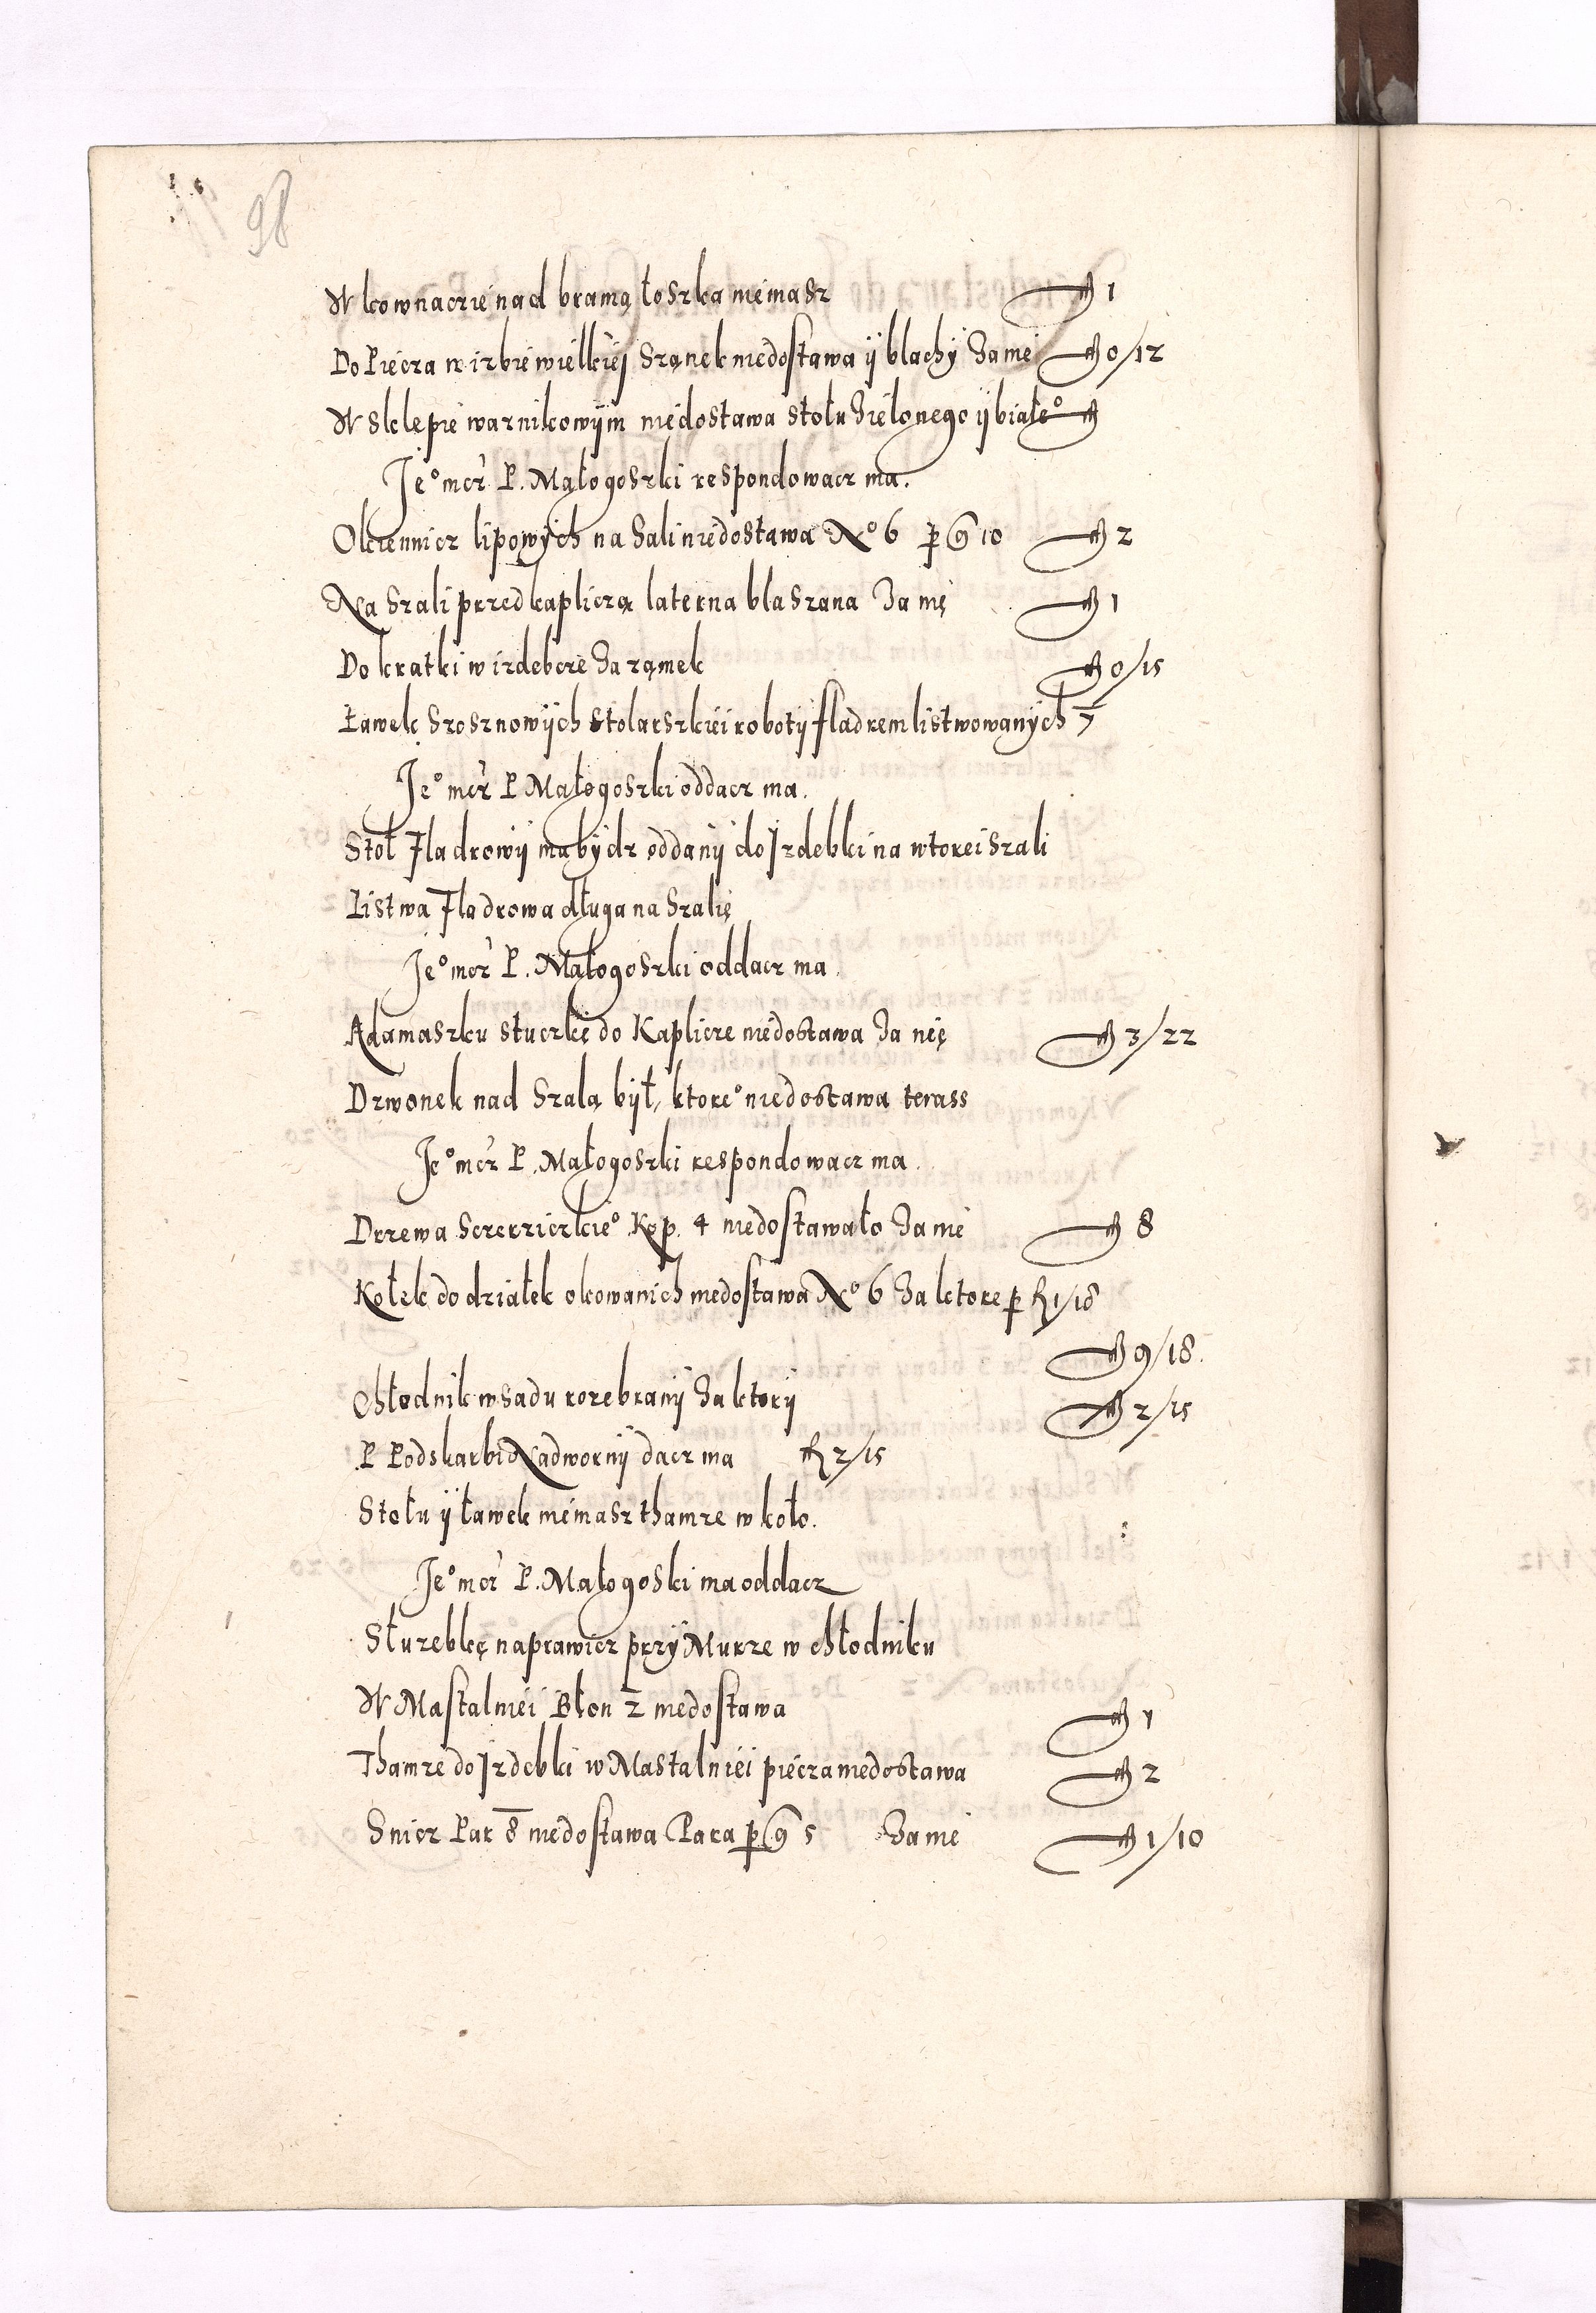 98
W kownaczie nad bramą łoszka niemasz fl 1
Do Piecza w izbie wielkiej Szanek niedostawa ÿ blachÿ Za nie fl 0/12
W sklepie warnikowÿm niedostawa stołu Zielonego ÿ białe° fl
Je° mcz P. Małogoszki respondowacz ma.
Okiennicz lipowÿch na Sali niedostawa N° 6 p g 10 fl 2
Na Szali przed kapliczą laterna blaszana Za nię fl 1
Do kratki w izdebcze Za zamek fl 0/15
Ławek Szosznowÿch stolarszkiei robotÿ fladrem listwowanÿch 7
Je° mcz P Małogoszki oddacz ma.
Stoł Fladrowÿ ma bÿdz oddanÿ do Izdebki na wtorei Szali
Listwa Fladrowa długa na Szalię
Je° mcz P. Małogoszki oddacz ma.
Adamaszku stuczkę do Kaplicze niedostawa Za nię fl 3/22
Dzwonek nad Szalą bÿł, ktore° niedostawa terass
Je° mcz P. Małogoszki respondowacz ma.
Drzewa Kop. 4 niedostawało Za nie fl 8
Kołek do działek okowanich niedostawa N° 6 Za ktore p fl 1/18
fl 9/18.
Chłodnik w sadu rozebranÿ Za ktorÿ fl 2/15
P Podskarbi Nadwornÿ dacz ma fl 2/15
Stołu ÿ ławek niemasz thamze w koło.
Je° mcz P. Małogoski ma oddacz
Słuzebkę naprawicz przÿ Murze w chłodniku
W Mastalniei Błon 2 niedostawa fl 1
Thamze do Izdebki w Mastalniei piecza niedostawa fl 2
Snicz Par 8 niedostawa Para p g 5 Za nie fl 1/10